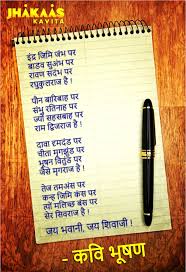 JHAKAAS
KAVITA
इंद्र जिमि जंभ पर
बाडव सुअंभ पर
रावण सदंभ पर
रघुकुलराज है !
पौन बारिबाह पर
संभु रतिनाह पर
ज्यों सहसबाह पर
राम द्विजराज है !
दावा द्रुमदंड पर
चीता मृगझुंड पर
भूषन वितुंड पर
जैसे मृगराज है !
तेज तमअंस पर
कन्ह जिमि कंस पर
त्यों मलिच्छ बंस पर
सेर सिवराज है !
जय भवानी, जय शिवाजी !
- कवि भूषण